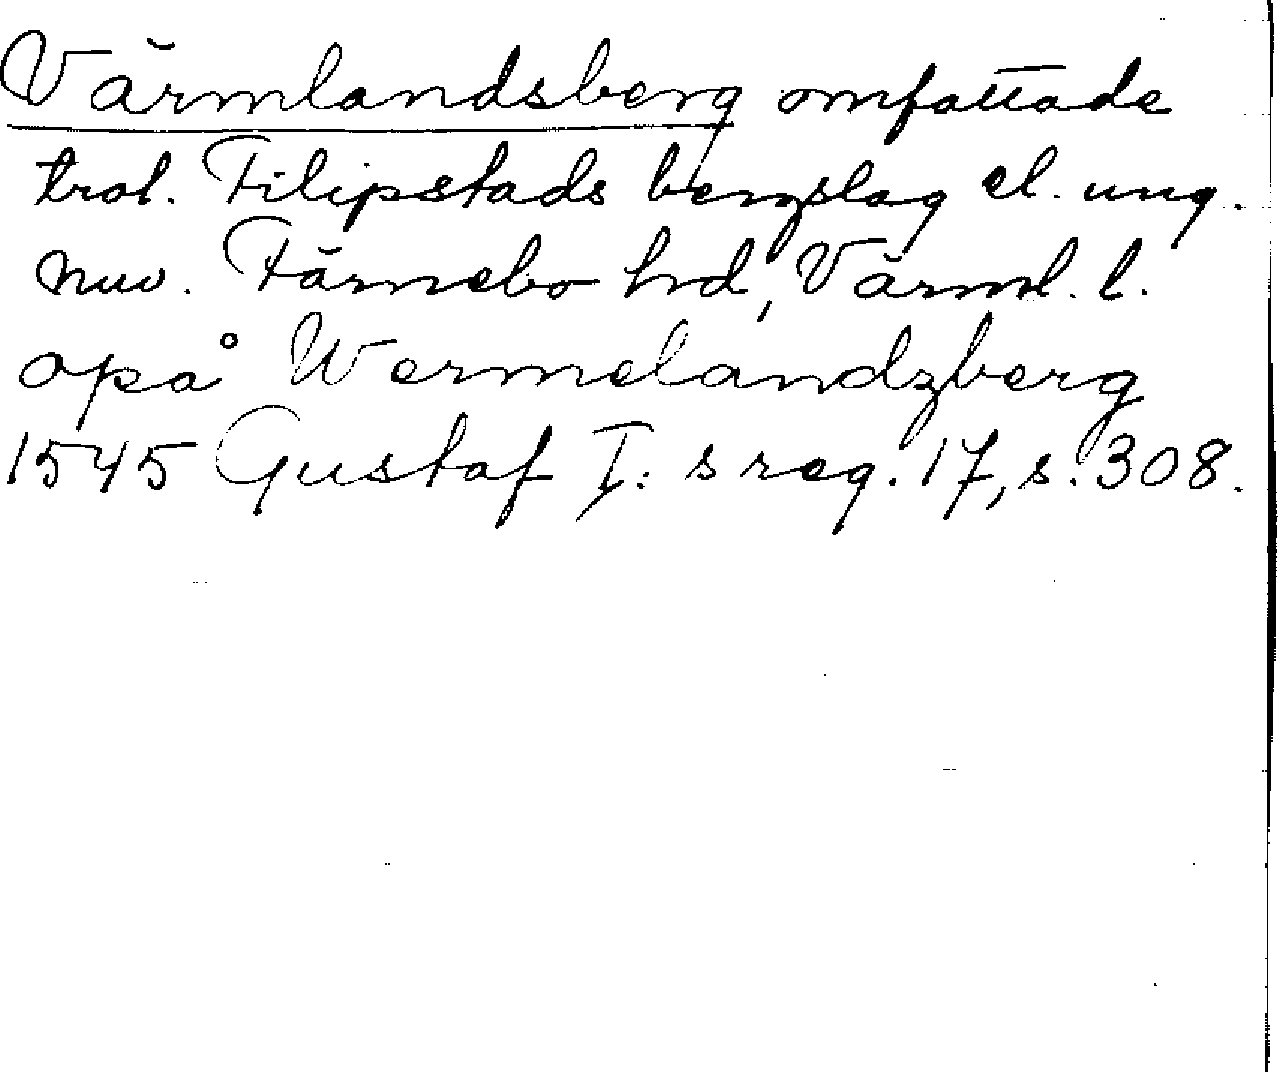 Värmlandsberg omfattade
trol. Filipstads bergslag el. ung.
nuv. Färnebo hd, Värml. l.
opå Wermelandzberg
1545 Gustaf I:s reg. 17, s. 308.